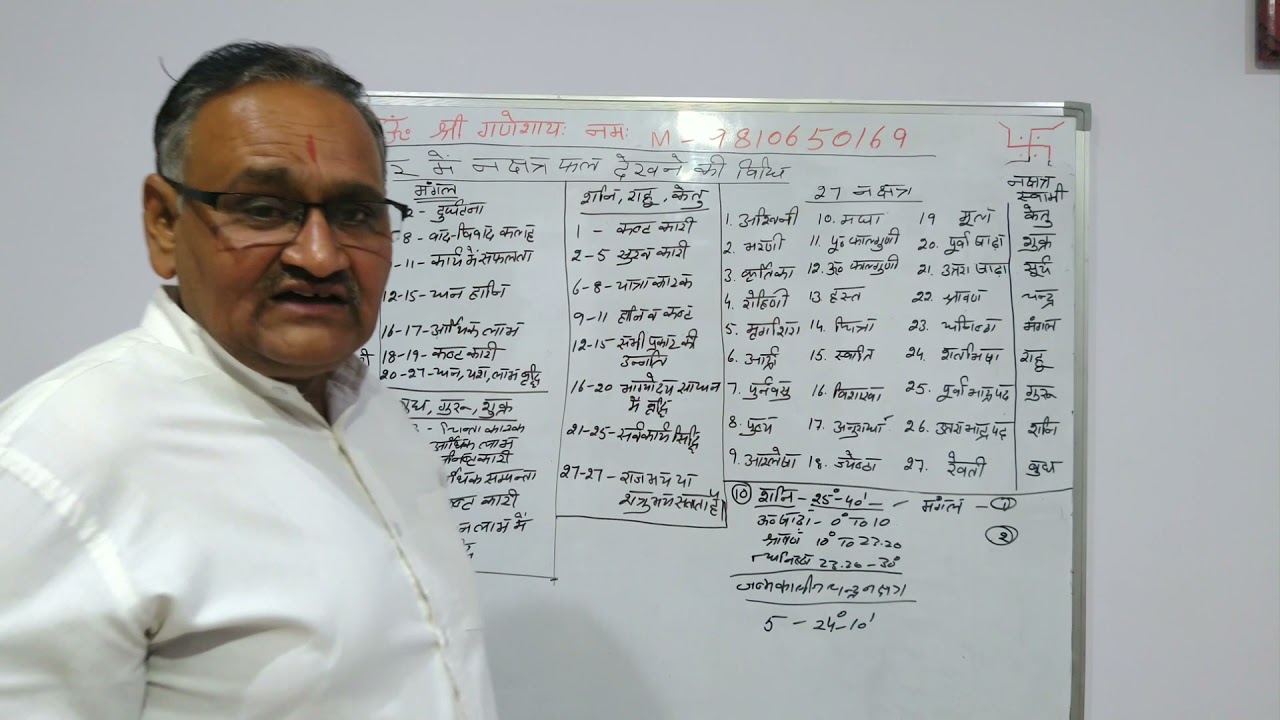 ॐ श्री गणेशायः नमः M - 9810650169
में नक्षत्र फल देखने की विधि
मंगल
2 - दुर्घटना
8 - वाद-विवाद कलह
- 11 - कार्य में सफलता
12-15 - धन हानि
16-17 - आर्थिक लाभ
18-19 - कष्ट कारी
20-27 - धन, यश, लाभ वृद्धि
बुध, गुरू, शुक्र
3 - चिन्ता कारक
आर्थिक लाभ
कारी
सम्पन्ता
कष्ट कारी
लाभ में
शनि, राहु, केतु
1 - कष्ट कारी
2-5 सुख कारी
6-8 - यात्रा कारक
9-11 हानि व कष्ट
12-15 सभी प्रकार की
उन्नति
16-20 भाग्योदय साधन
में वृद्धि
21-25 - सर्वकार्य सिद्धि
27-27 - राज भय या
शत्रु भय सताता है।
27 नक्षत्र
1. अश्विनी 10. मघा 19 मूल
2. भरणी 11. पू० फाल्गुणी 20. पूर्वाषाढा
3. कृतिका 12. उ० फाल्गुणी 21. उत्तराषाढा
4. रोहिणी 13. हस्त 22. श्रावण
5. मृगशिरा 14. चित्रा 23. धनिष्ठा
6. आर्द्रा 15. स्वाति 24. शतीभषा
7. पुर्नवसु 16. विशाखा 25. पूर्वाभाद्रपद
8. पुष्य 17. अनुराधा 26. उत्तराभाद्रपद
9. आश्लेषा 18. ज्येष्ठा 27. रेवती
नक्षत्र
स्वामी
केतु
शुक्र
सुर्य
चन्द्र
मंगल
राहू
गुरू
शनि
बुध
10 शनि - 25°-40' - मंगल - 1
उ०षाढा - 0° To 10
श्रावण 10° To 23.20
धनिष्ठा 23.20 - 30°
2
जन्मकालीन चन्द्र नक्षत्र
5 - 24°-10'